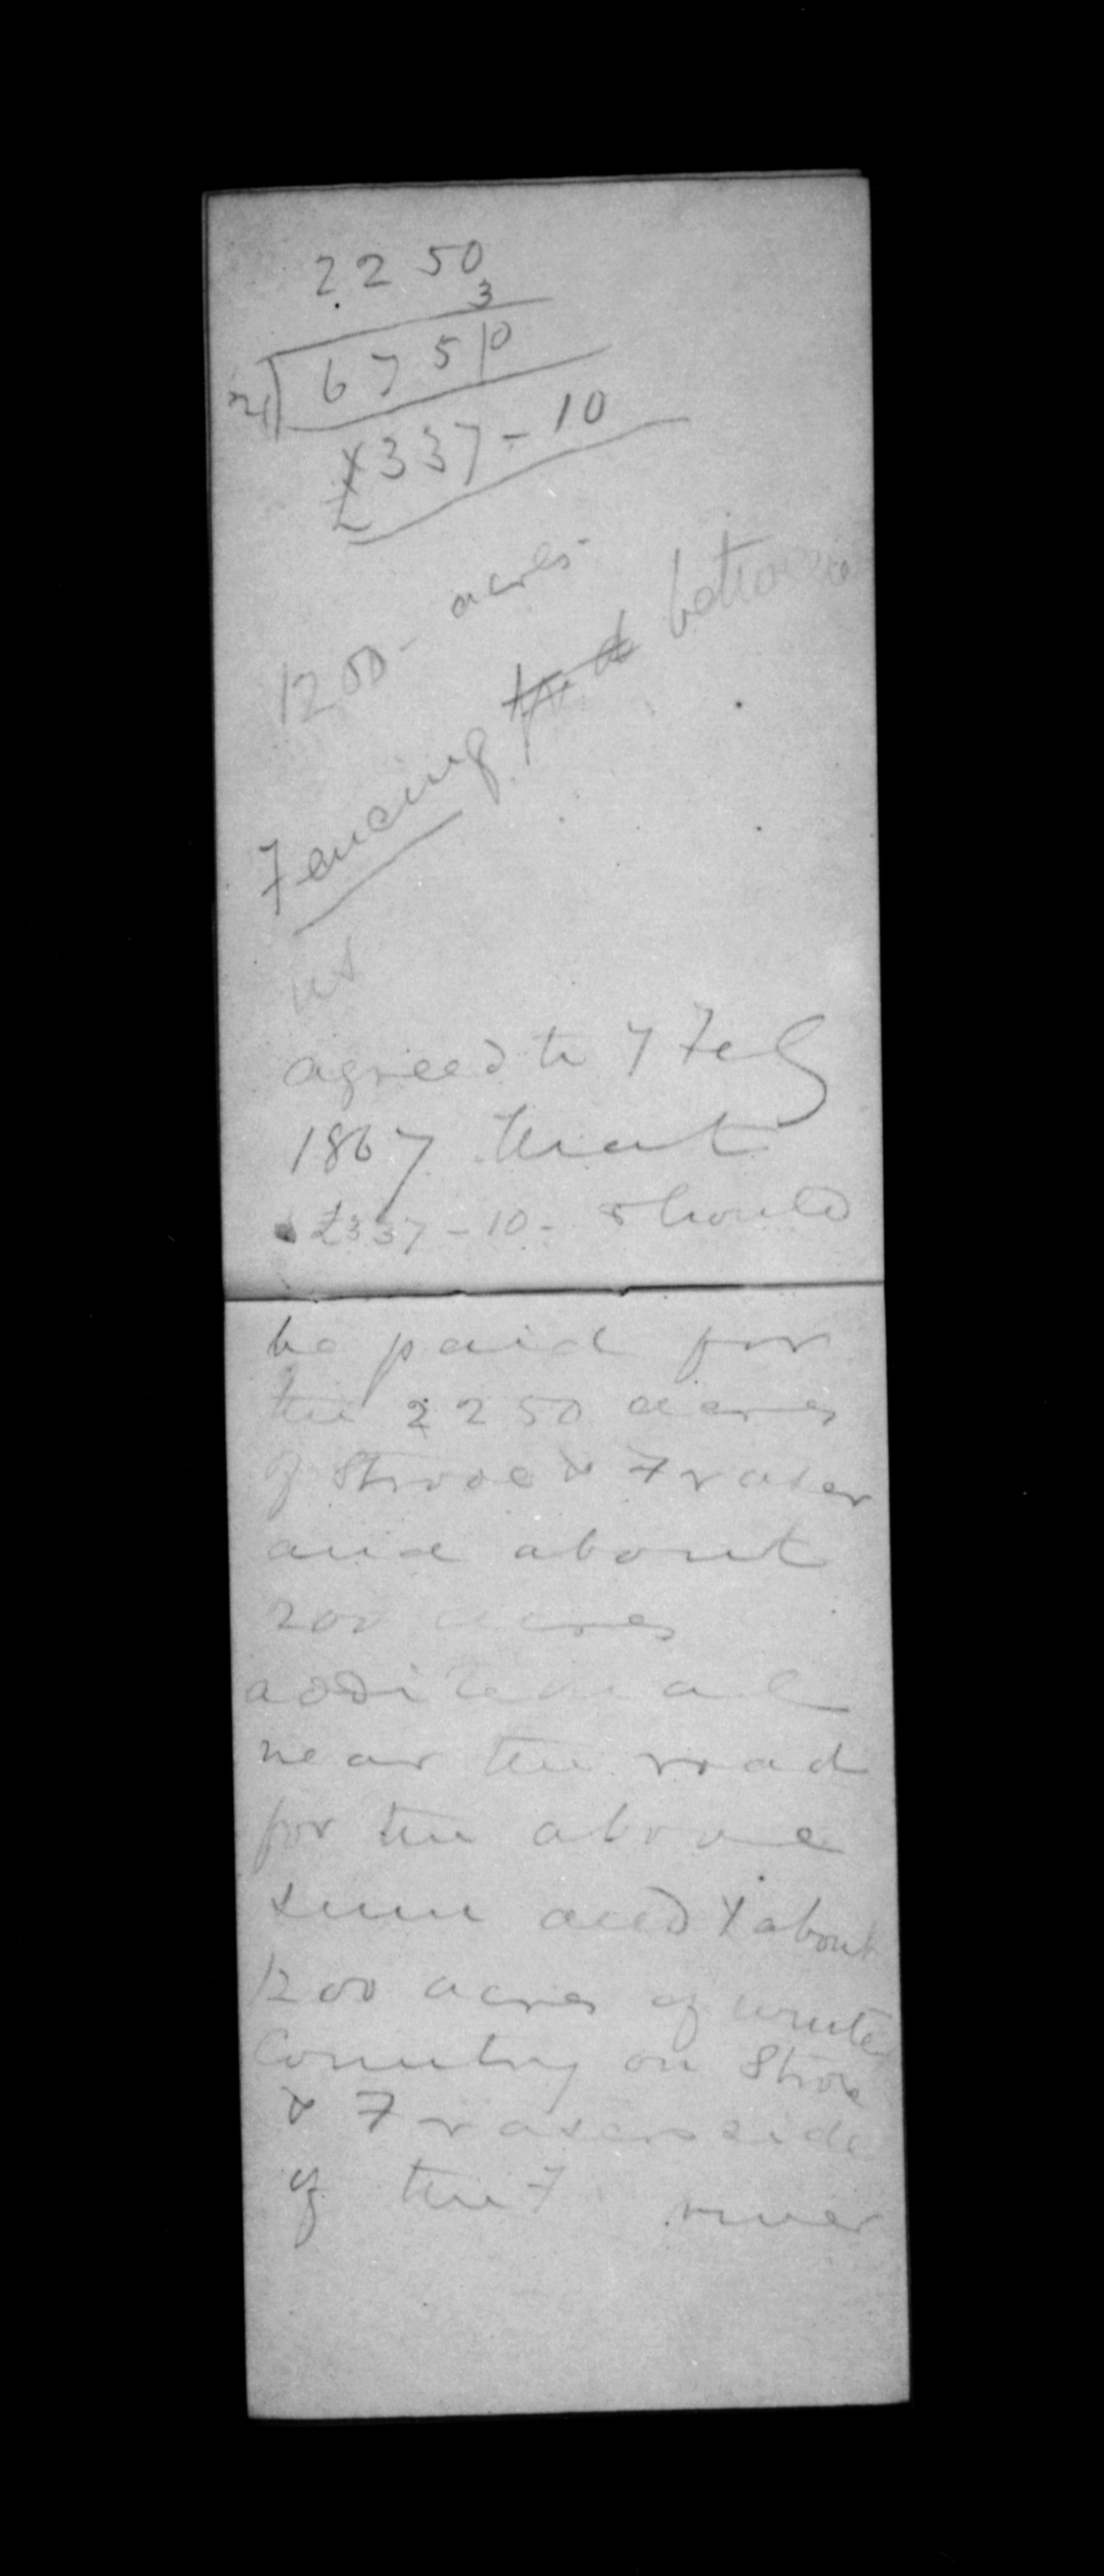 2250
3
2|675|0
£337-10
1200- acres-
Fencing between
us
agreed to 7 Feby
1867 that
£337-10- should
be paid for
the 2250 acres
of Stroode & Fraser
and about
200 acres
additional
near the road
for the above
sum and X about
1200 acres of winter
Country on
& Frasers side
of the river